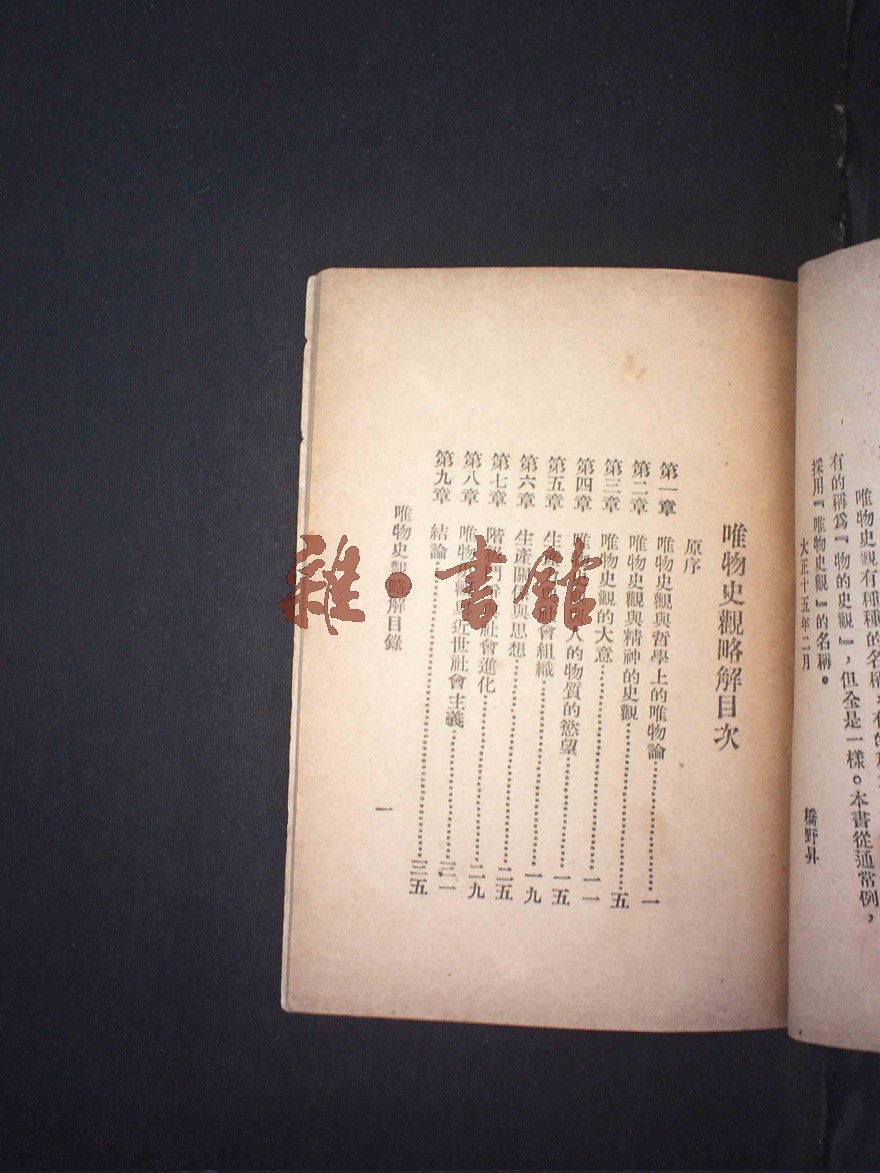 唯物史觀有種種的名稱，有的
有的稱爲『物的史觀』，但全是一樣。本書從通常例，
採用『唯物史觀』的名稱。
大正十五年二月
橋野昇
唯物史觀略解目次
原序
第一章 唯物史觀與哲學上的唯物論…………一
第二章 唯物史觀與精神的史觀…………五
第三章 唯物史觀的大意…………一一
第四章 唯物史觀 人的物質的慾望…………一五
第五章 生產 會組織…………一九
第六章 生產關係與思想…………二五
第七章 階級鬥爭與社會進化…………二九
第八章 唯物史觀與近世社會主義…………三一
第九章 結論…………三五
唯物史觀略解目錄
一
雜·書館